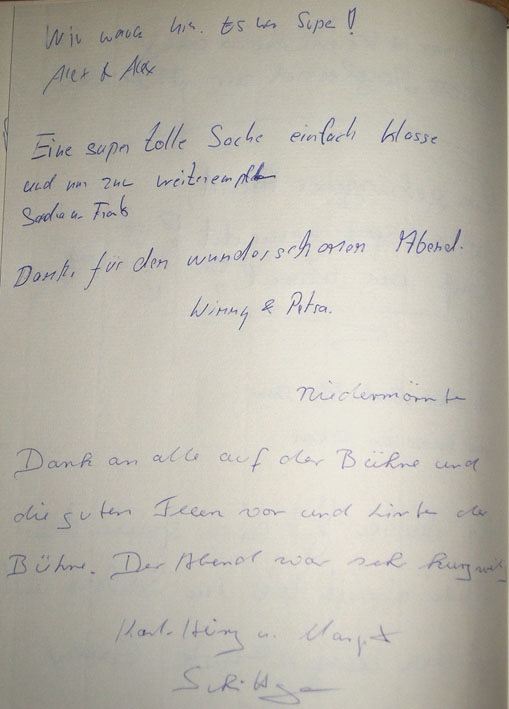 Wir waren hier. Es war Super!
Alex & Alex
Eine super tolle Sache einfach Klasse
und nur zur weiterempf
u. Frank
Danke für den wunderschönen Abend.
Winny & Petra.
Niedermörmter
Dank an alle auf der Bühne und
die guten Feen vor und hinter der
Bühne. Der Abend war sehr kurzweilig
Karl-Heinz u. Margret